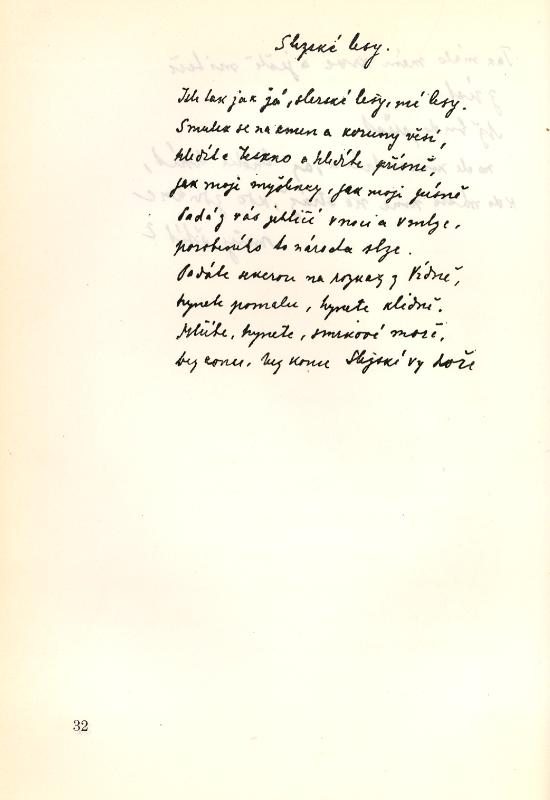 Slezské lesy.
Jste tak jak já, slezské lesy, mé lesy.
Smutek se na kmen a koruny věsí,
hledíte teskno a hledíte přísně,
jak moje myšlenky, jak moje písně
Padá z vás jehličí v noci a v mlze,
porobeného to národa slze.
Padáte sekerou na rozkaz z Vídně,
hynete pomalu, hynete klidně.
Mlčíte, hynete, smrkové moře,
bez konce, bez konce Slezské vy hoře
32